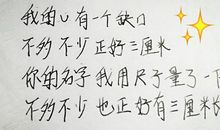 我的心有一个缺口
不多不少正好三厘米
你的名字我用尺子量了一下
不多不少也正好有三厘米